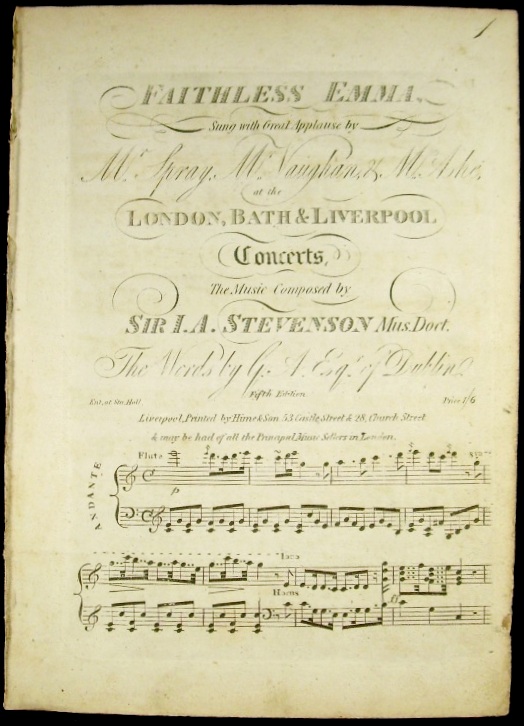 1
FAITHLESS EMMA.
Sung with Great Applause by
Mr. Spray, Mr. Vaughan, & M. Ashe,
at the
LONDON, BATH & LIVERPOOL
Concerts,
The Music Composed by
SIR I.A. STEVENSON Mus. Doct.
The Words by G. A. Esqr. of Dublin.
Fifth Edition
Ent. at Sta. Hall Price 1/6
Liverpool, Printed by Hime & Son 53 Castle Street & 28, Church Street
& may be had of all the Principal Music Sellers in London.
Flute
ANDANTE
p
8va
loco
Horns
ff